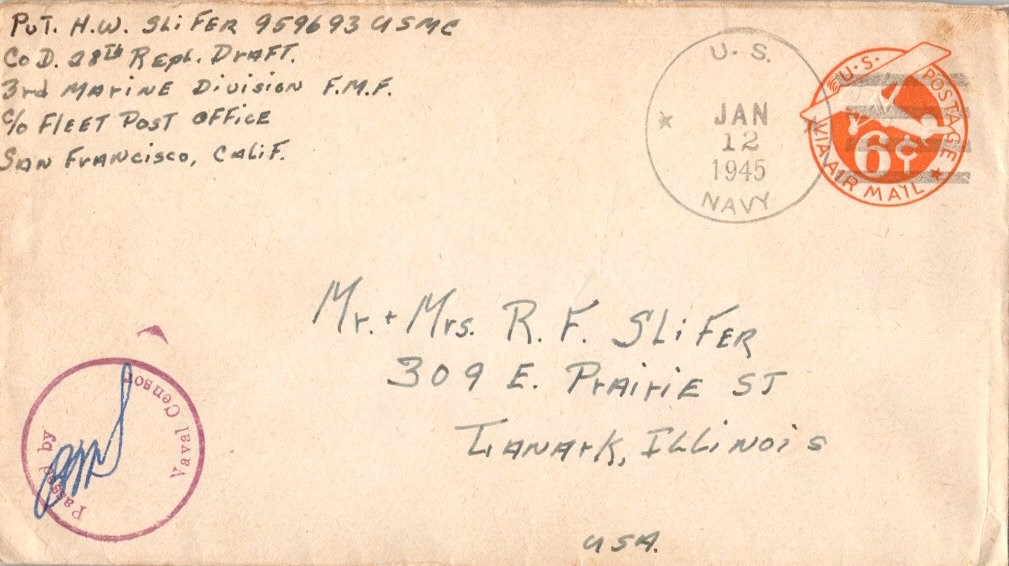 PvT. H.W. SLiFER 959693 USMC
Co D. 28Th Repl. Draft.
3rd Marine Division F.M.F.
c/o Fleet Post Office
San Francisco, Calif.
U. S.
JAN
12
1945
NAVY
U.S. POSTAGE
6¢
VIA AIR MAIL
Mr. + Mrs. R. F. SLiFER
309 E. Prairie ST
Lanark, Illinois
USA.
Passed by
Naval Censor